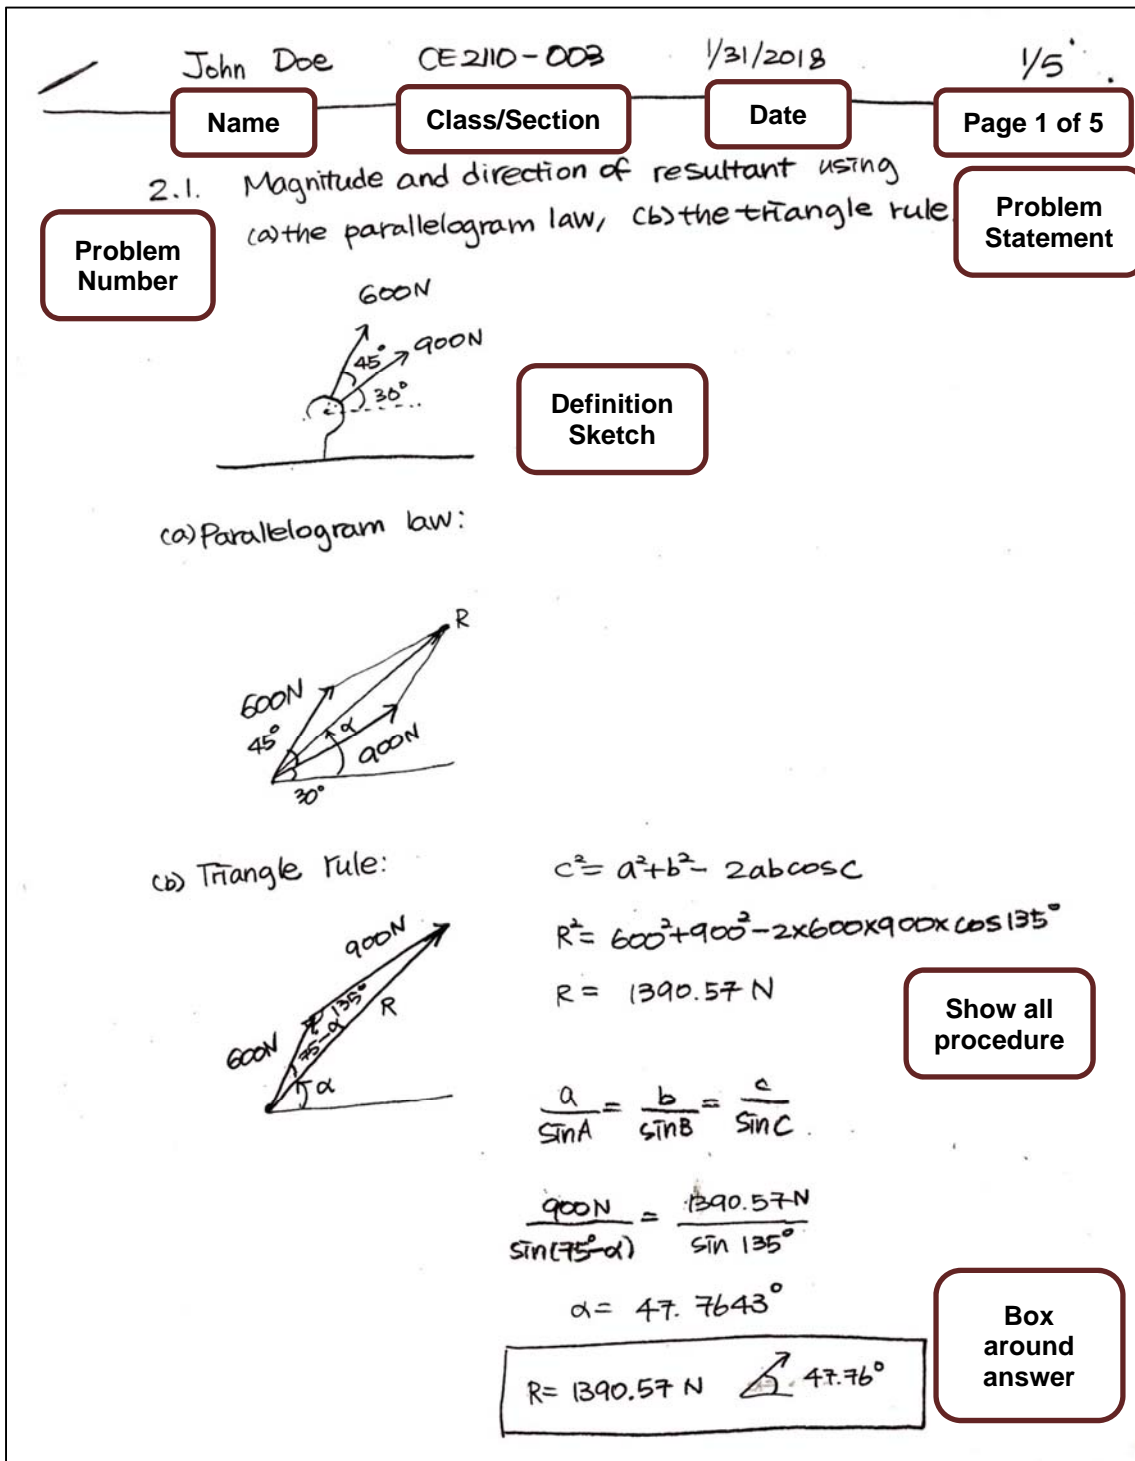 John Doe CE2110-003 1/31/2018 1/5
Name Class/Section Date Page 1 of 5
2.1. Magnitude and direction of resultant using
(a) the parallelogram law, (b) the triangle rule
Problem
Number
Problem
Statement
600N
900N
45°
30°
Definition
Sketch
(a) Parallelogram law:
R
600N
45°
α
900N
30°
(b) Triangle rule:
900N
135°
R
75-α
600N
α
c² = a²+b² - 2abcosC
R² = 600²+900²-2×600×900×cos135°
R = 1390.57 N
Show all
procedure
a/sinA = b/sinB = c/sinC
900N/sin(75°-α) = 1390.57N/sin 135°
α = 47.7643°
R = 1390.57 N 47.76°
Box
around
answer